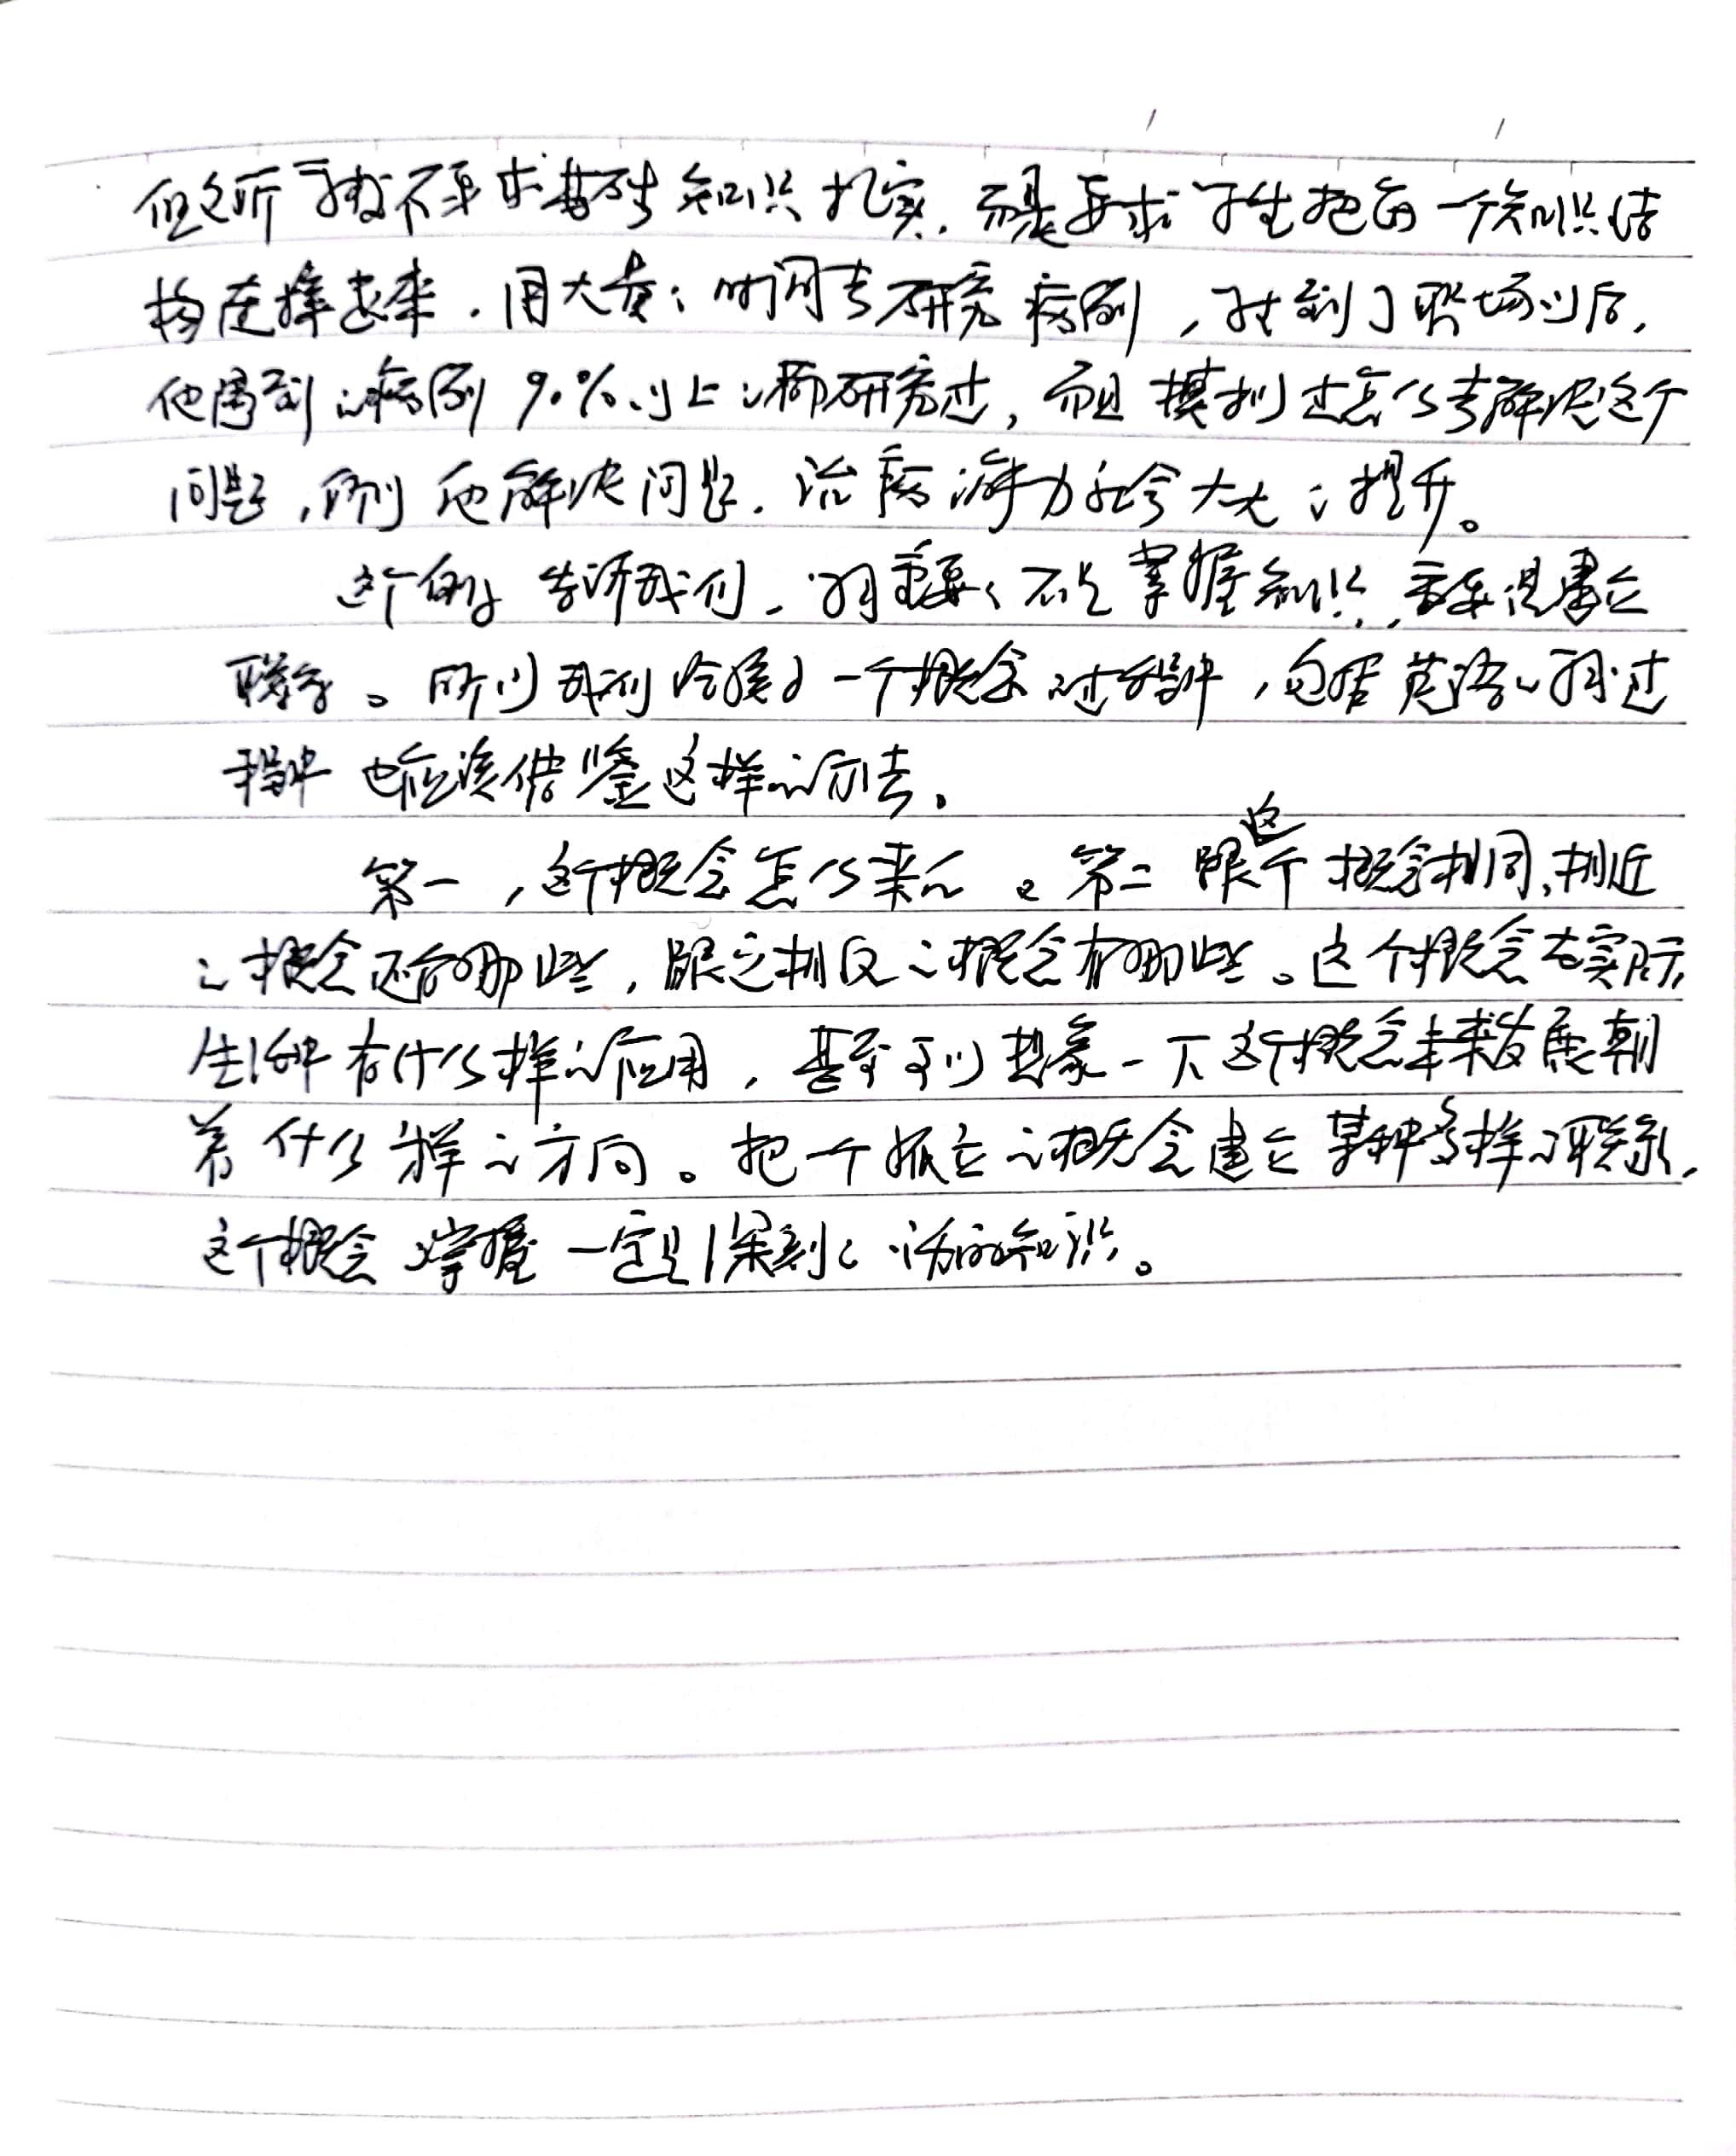 但这所学校不要求基础知识扎实，而是要求学生把每一个知识结
构连接起来，用大量的时间去研究病例，于是到了职场以后，
他遇到的病例90%以上的都研究过，而且模拟过怎么去解决这个
问题，所以他解决问题、治病能力就会大大的提升。
这个例子告诉我们，学习重要的不是掌握知识，而是建立
联系。所以我们在学习一个概念的过程中，包括英语的学习过
程中也应该借鉴这样的方法。
第一，这个概念怎么来的。第二跟这个概念相同、相近
的概念还有哪些，跟它相反的概念有哪些。这个概念在实际
生活中有什么样的应用，甚至可以想象一下这个概念未来发展朝
着什么样的方向。把一个孤立的概念建立某种多样的联系，
这个概念掌握一定是深刻的、活的知识。